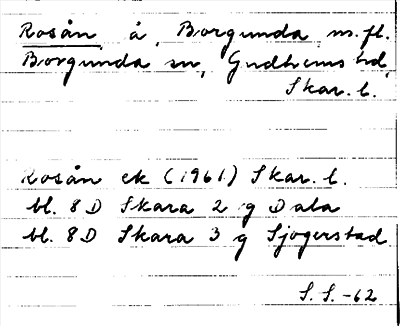 Rosån å, Borgunda m.fl.
Borgunda sn, Gudhems hd,
Skar. l.
Rosån ek (1961) Skar. l.
bl. 8D Skara 2 g Dala
bl. 8D Skara 3 g Sjogerstad
S. S. -62